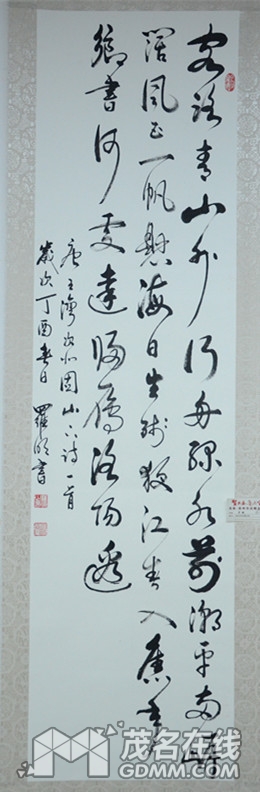 客路青山外行舟綠水前潮平兩岸
闊風正一帆懸海日生殘夜江春入舊年
鄉書何處達歸雁洛陽邊
唐王灣次北固山下詩一首
歲次丁酉春日 羅書
茂名在线
GDMM.COM